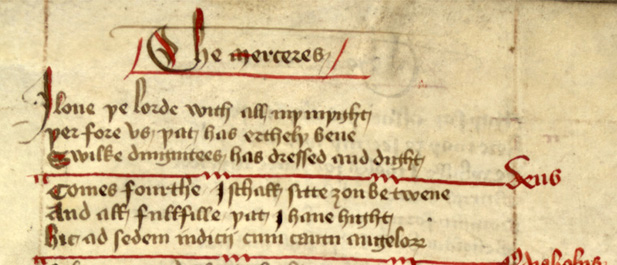 The merceres
I loue þe lorde with all my myght
þer fore vs þat has erthely bene
Swilke dingnitees has dressed and dight
Deus
Comes fourthe I schall sitte ȝou be twene
And all fullfille þat I haue hight
hic ad sedem iudicij cum cantu angeloꝝ